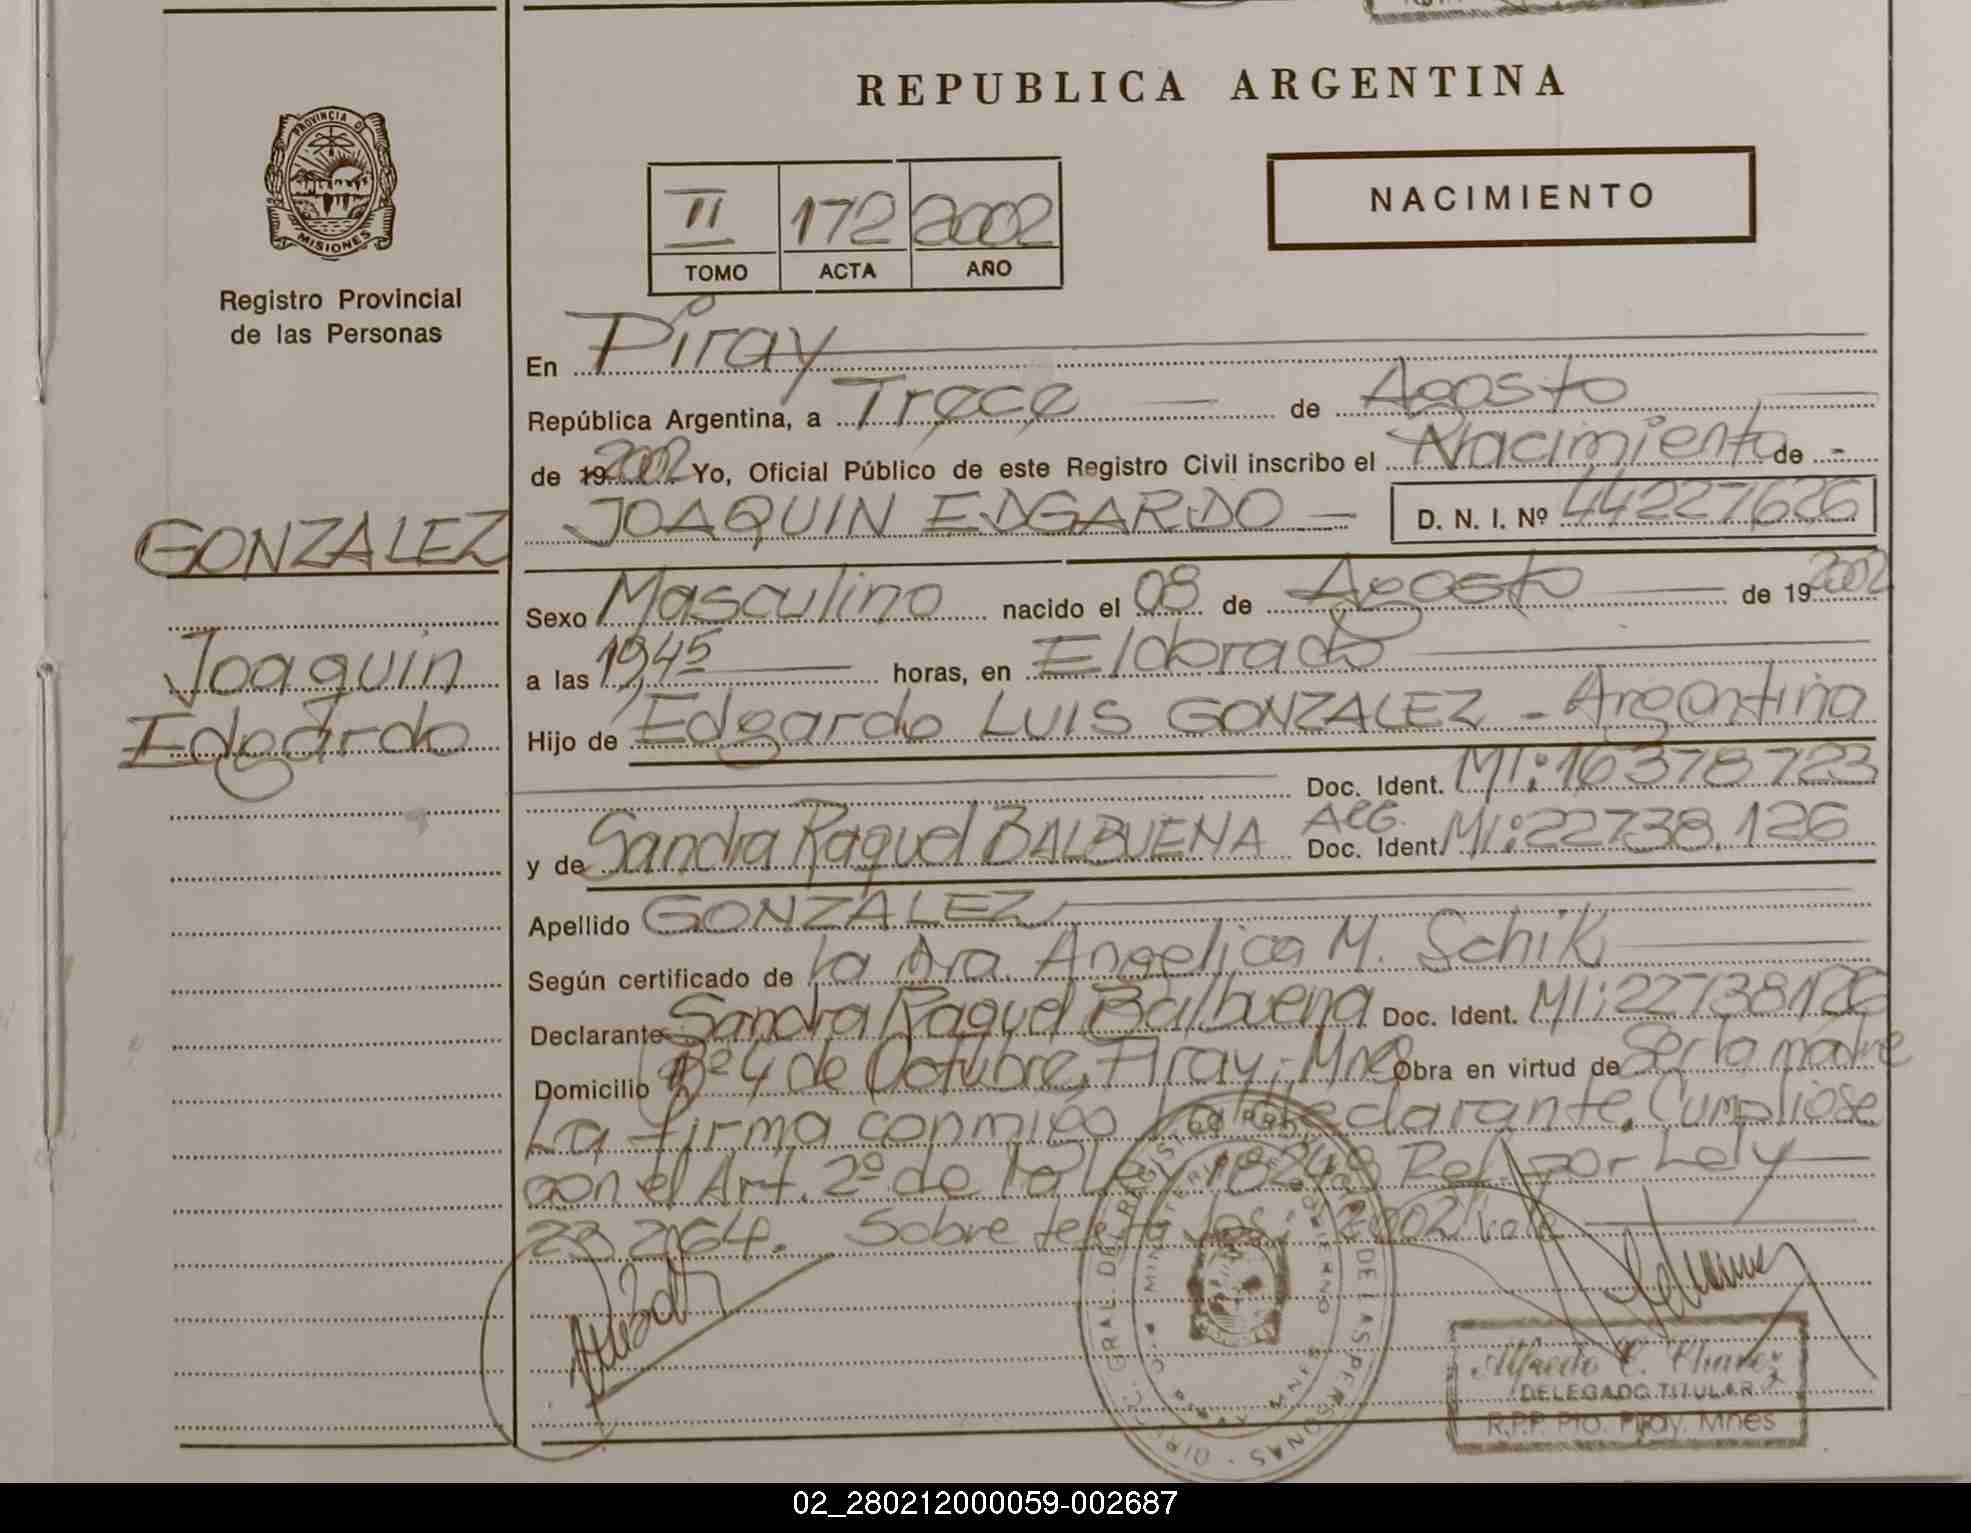 REPUBLICA ARGENTINA
PROVINCIA DE
MISIONES
Registro Provincial
de las Personas
NACIMIENTO
II 172 2002
TOMO ACTA AÑO
En Piray
República Argentina, a Trece de Agosto
de 19 2002 Yo, Oficial Público de este Registro Civil inscribo el Nacimiento de
GONZALEZ
JOAQUIN EDGARDO D. N. I. Nº 44227626
Sexo Masculino nacido el 08 de Agosto de 19 2002
Joaquin
a las 19,45 horas, en Eldorado
Edgardo
Hijo de Edgardo LUIS GONZALEZ - Argentina
Doc. Ident. MI:16378723
y de Sandra Raquel BALBUENA Arg. Doc. Ident. MI:22738.126
Apellido GONZALEZ
Según certificado de la Dra. Angelica M. Schik
Declarante Sandra Raquel Balbuena Doc. Ident. MI:22738126
Domicilio Bº 4 de Octubre, Piray, Mnes Obra en virtud de Ser la madre
La firma conmigo la declarante. Cumpliose
con el Art. 2º de la Ley 18248 Ref. por Ley
23264. Sobre testa dos: 2002 Vale
DELEGADO TITULAR
R.P.P. Pto. Piray. Mnes
02_280212000059-002687